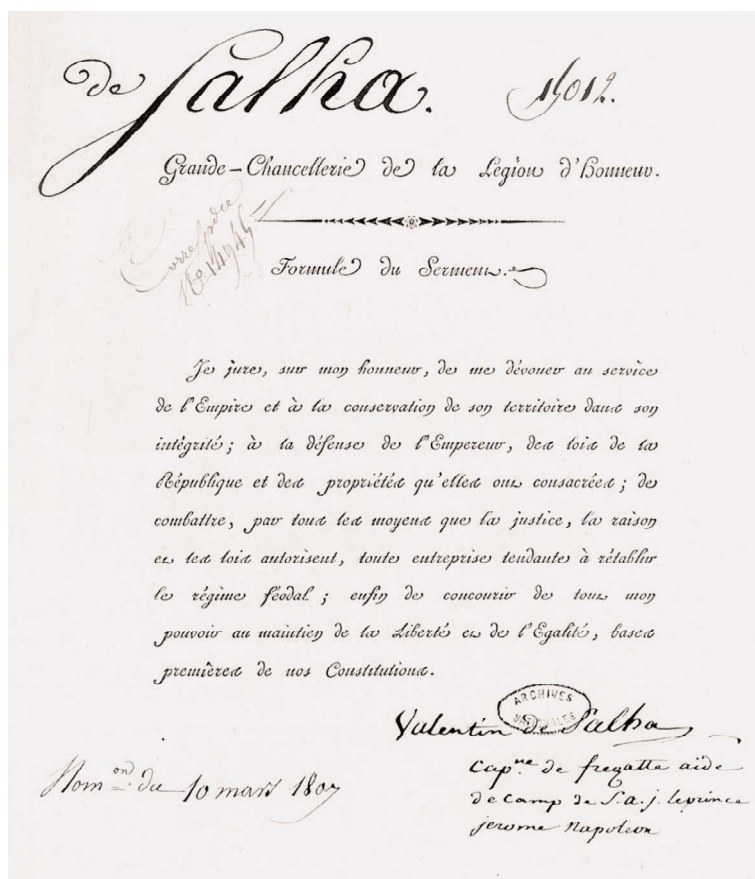 de Salha. 15012.
Grande-Chancellerie de la Légion d'Honneur.
Correspdce
No 14945
Formule du Serment.
Je jure, sur mon honneur, de me dévouer au service
de l'Empire et à la conservation de son territoire dans son
intégrité; à la défense de l'Empereur, des lois de la
République et des propriétés qu'elles ont consacrées; de
combattre, par tous les moyens que la justice, la raison
et les lois autorisent, toute entreprise tendante à rétablir
le régime féodal; enfin de concourir de tout mon
pouvoir au maintien de la Liberté et de l'Egalité, bases
premières de nos Constitutions.
ARCHIVES
NATIONALES
Valentin de Salha
Capne de fregatte aide
de camp de S.a.j. leprince
jerome Napoleon
Nomon du 10 mars 1807